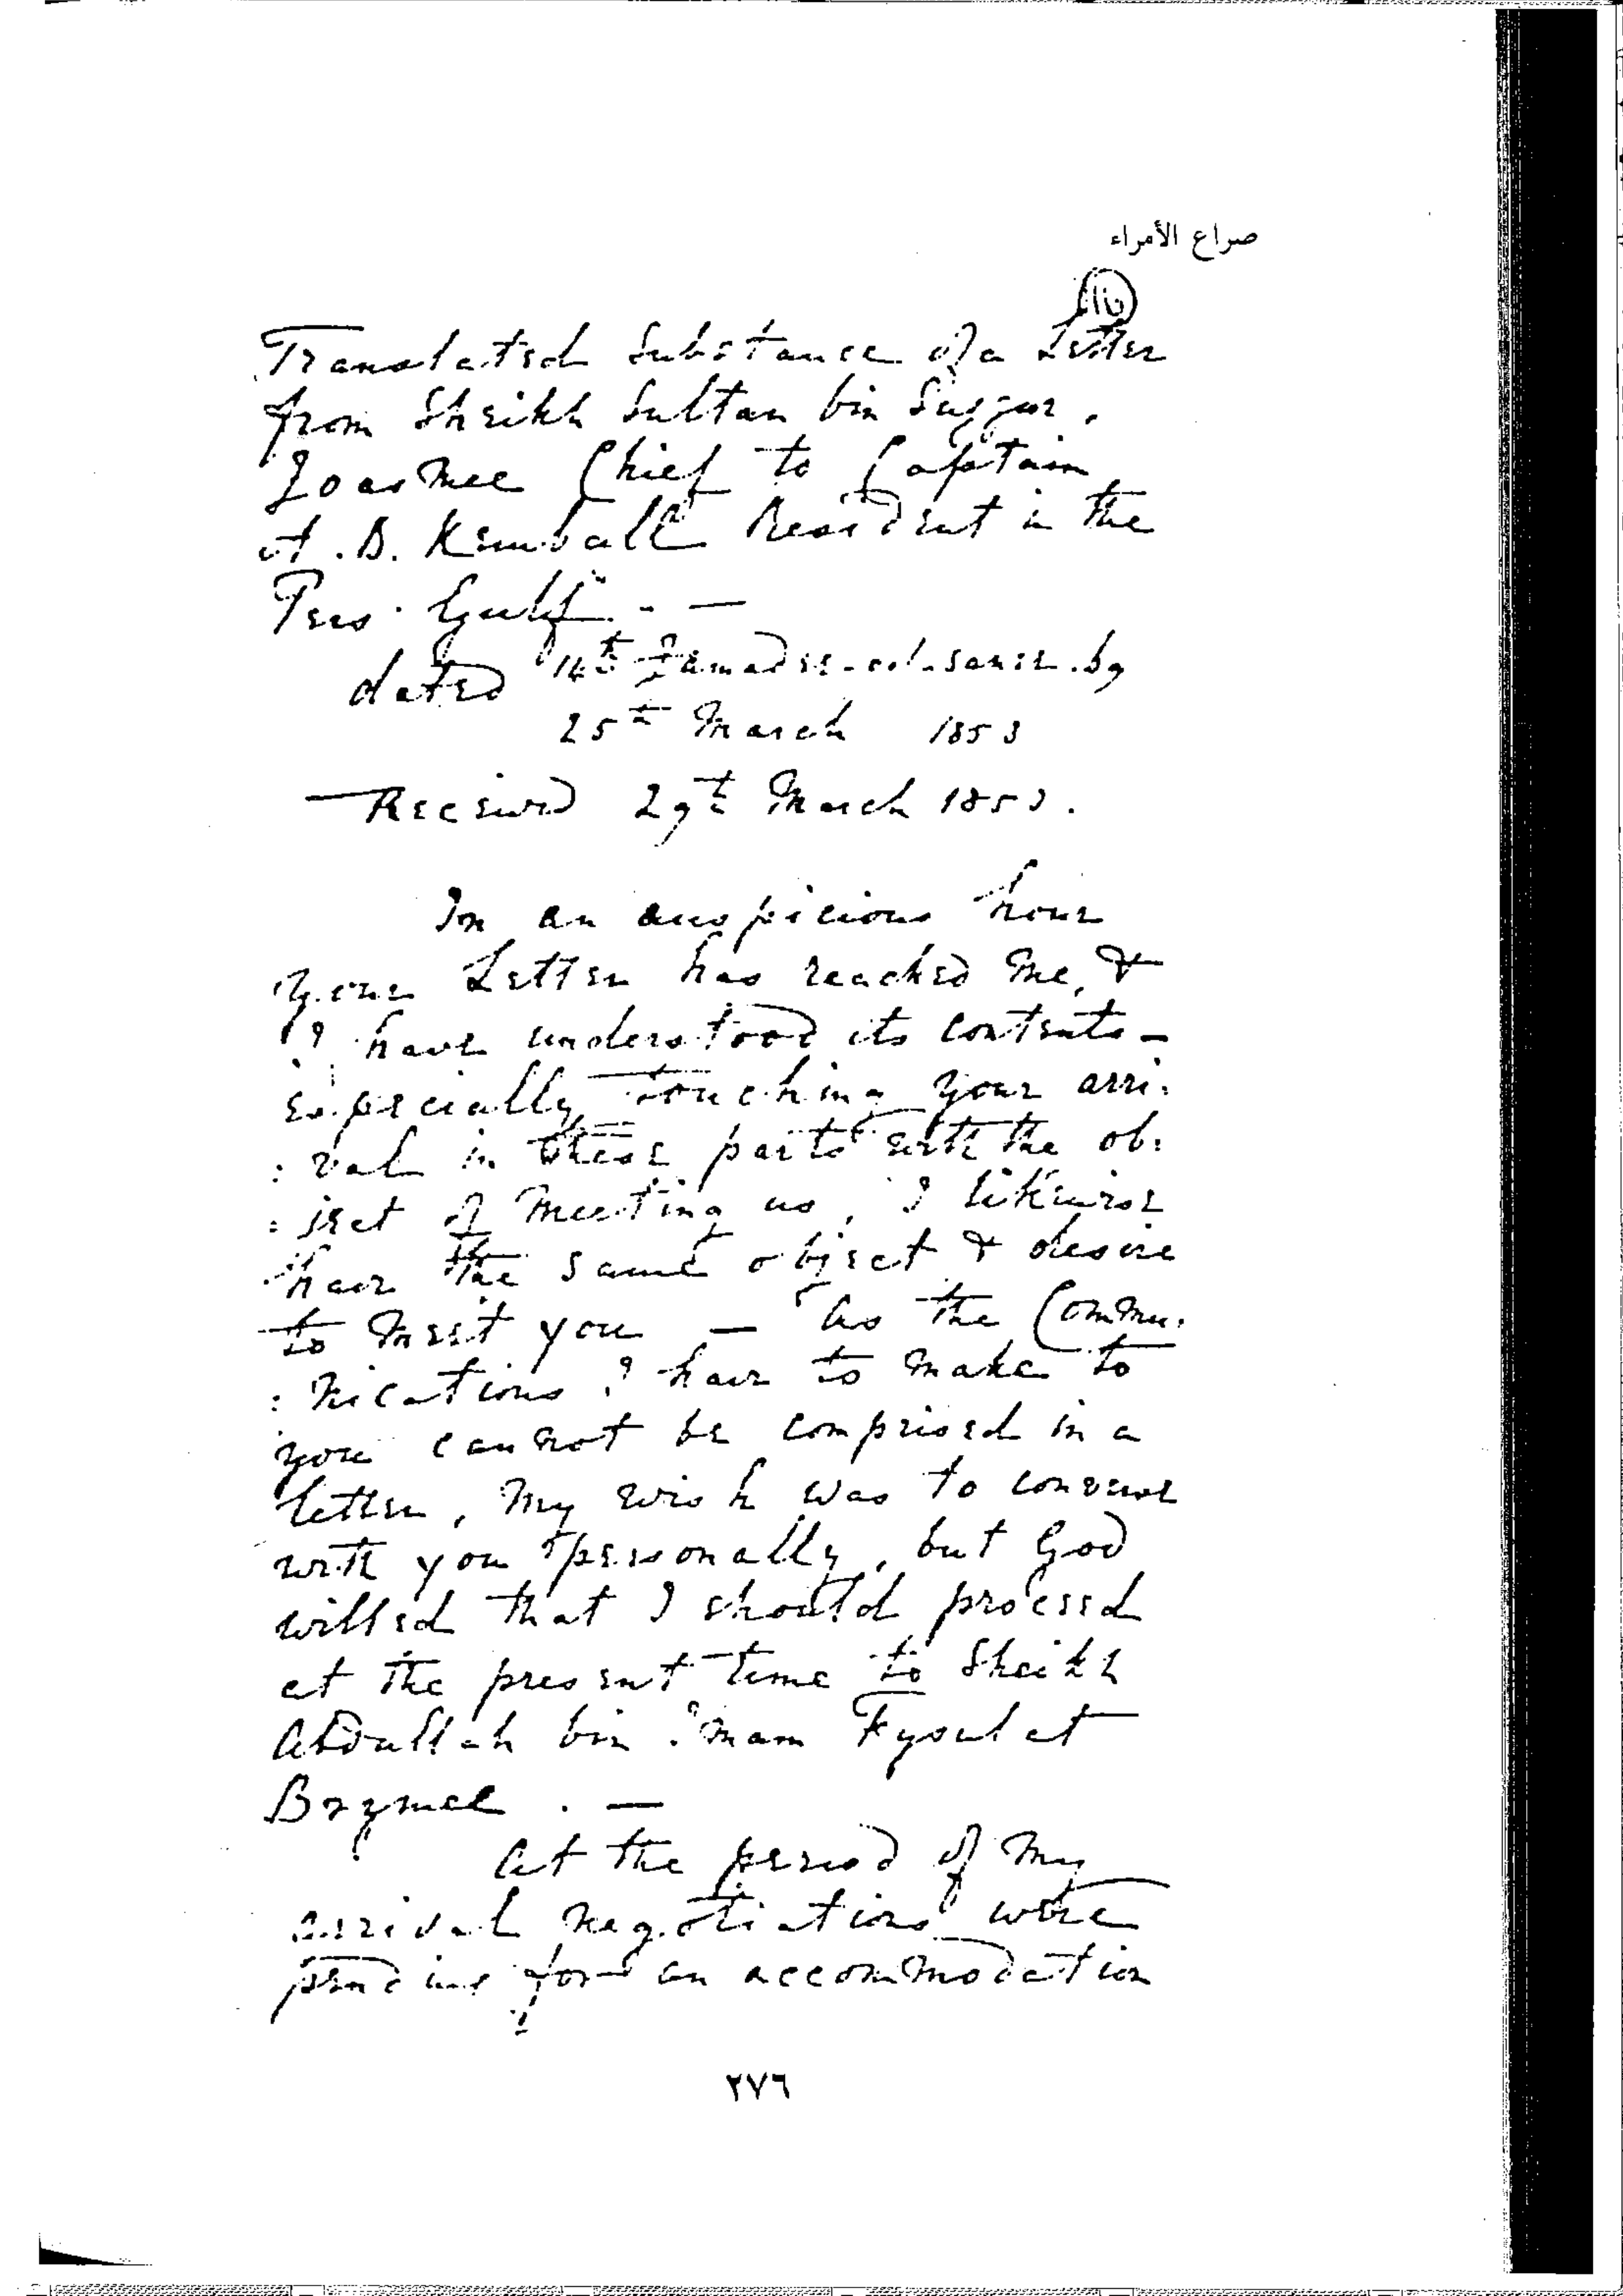 صراع الأمراء
Translated Substance of a Letter
from Sheikh Sultan bin Suggur.
Joasmee Chief to Captain
A. B. Kemball Resident in the
Pers. Gulf. —
dated 14th Jamadee-ool-
25th March 1853
Received 29th March 1853.
In an auspicious hour
your Letter has reached me, &
I have understood its contents -
especially touching your arri:
: val in these parts with the ob:
: ject of meeting us, I likewise
have the same object & desire
to meet you — As the Commu:
: nications I have to make to
you cannot be comprised in a
letter, my wish was to converse
with you personally, but God
willed that I should proceed
at the present time to Sheikh
Abdullah bin Imam Fysul at
Brymee. —
At the period of my
arrival negotiations were
pending for an accommodation
٢٧٦